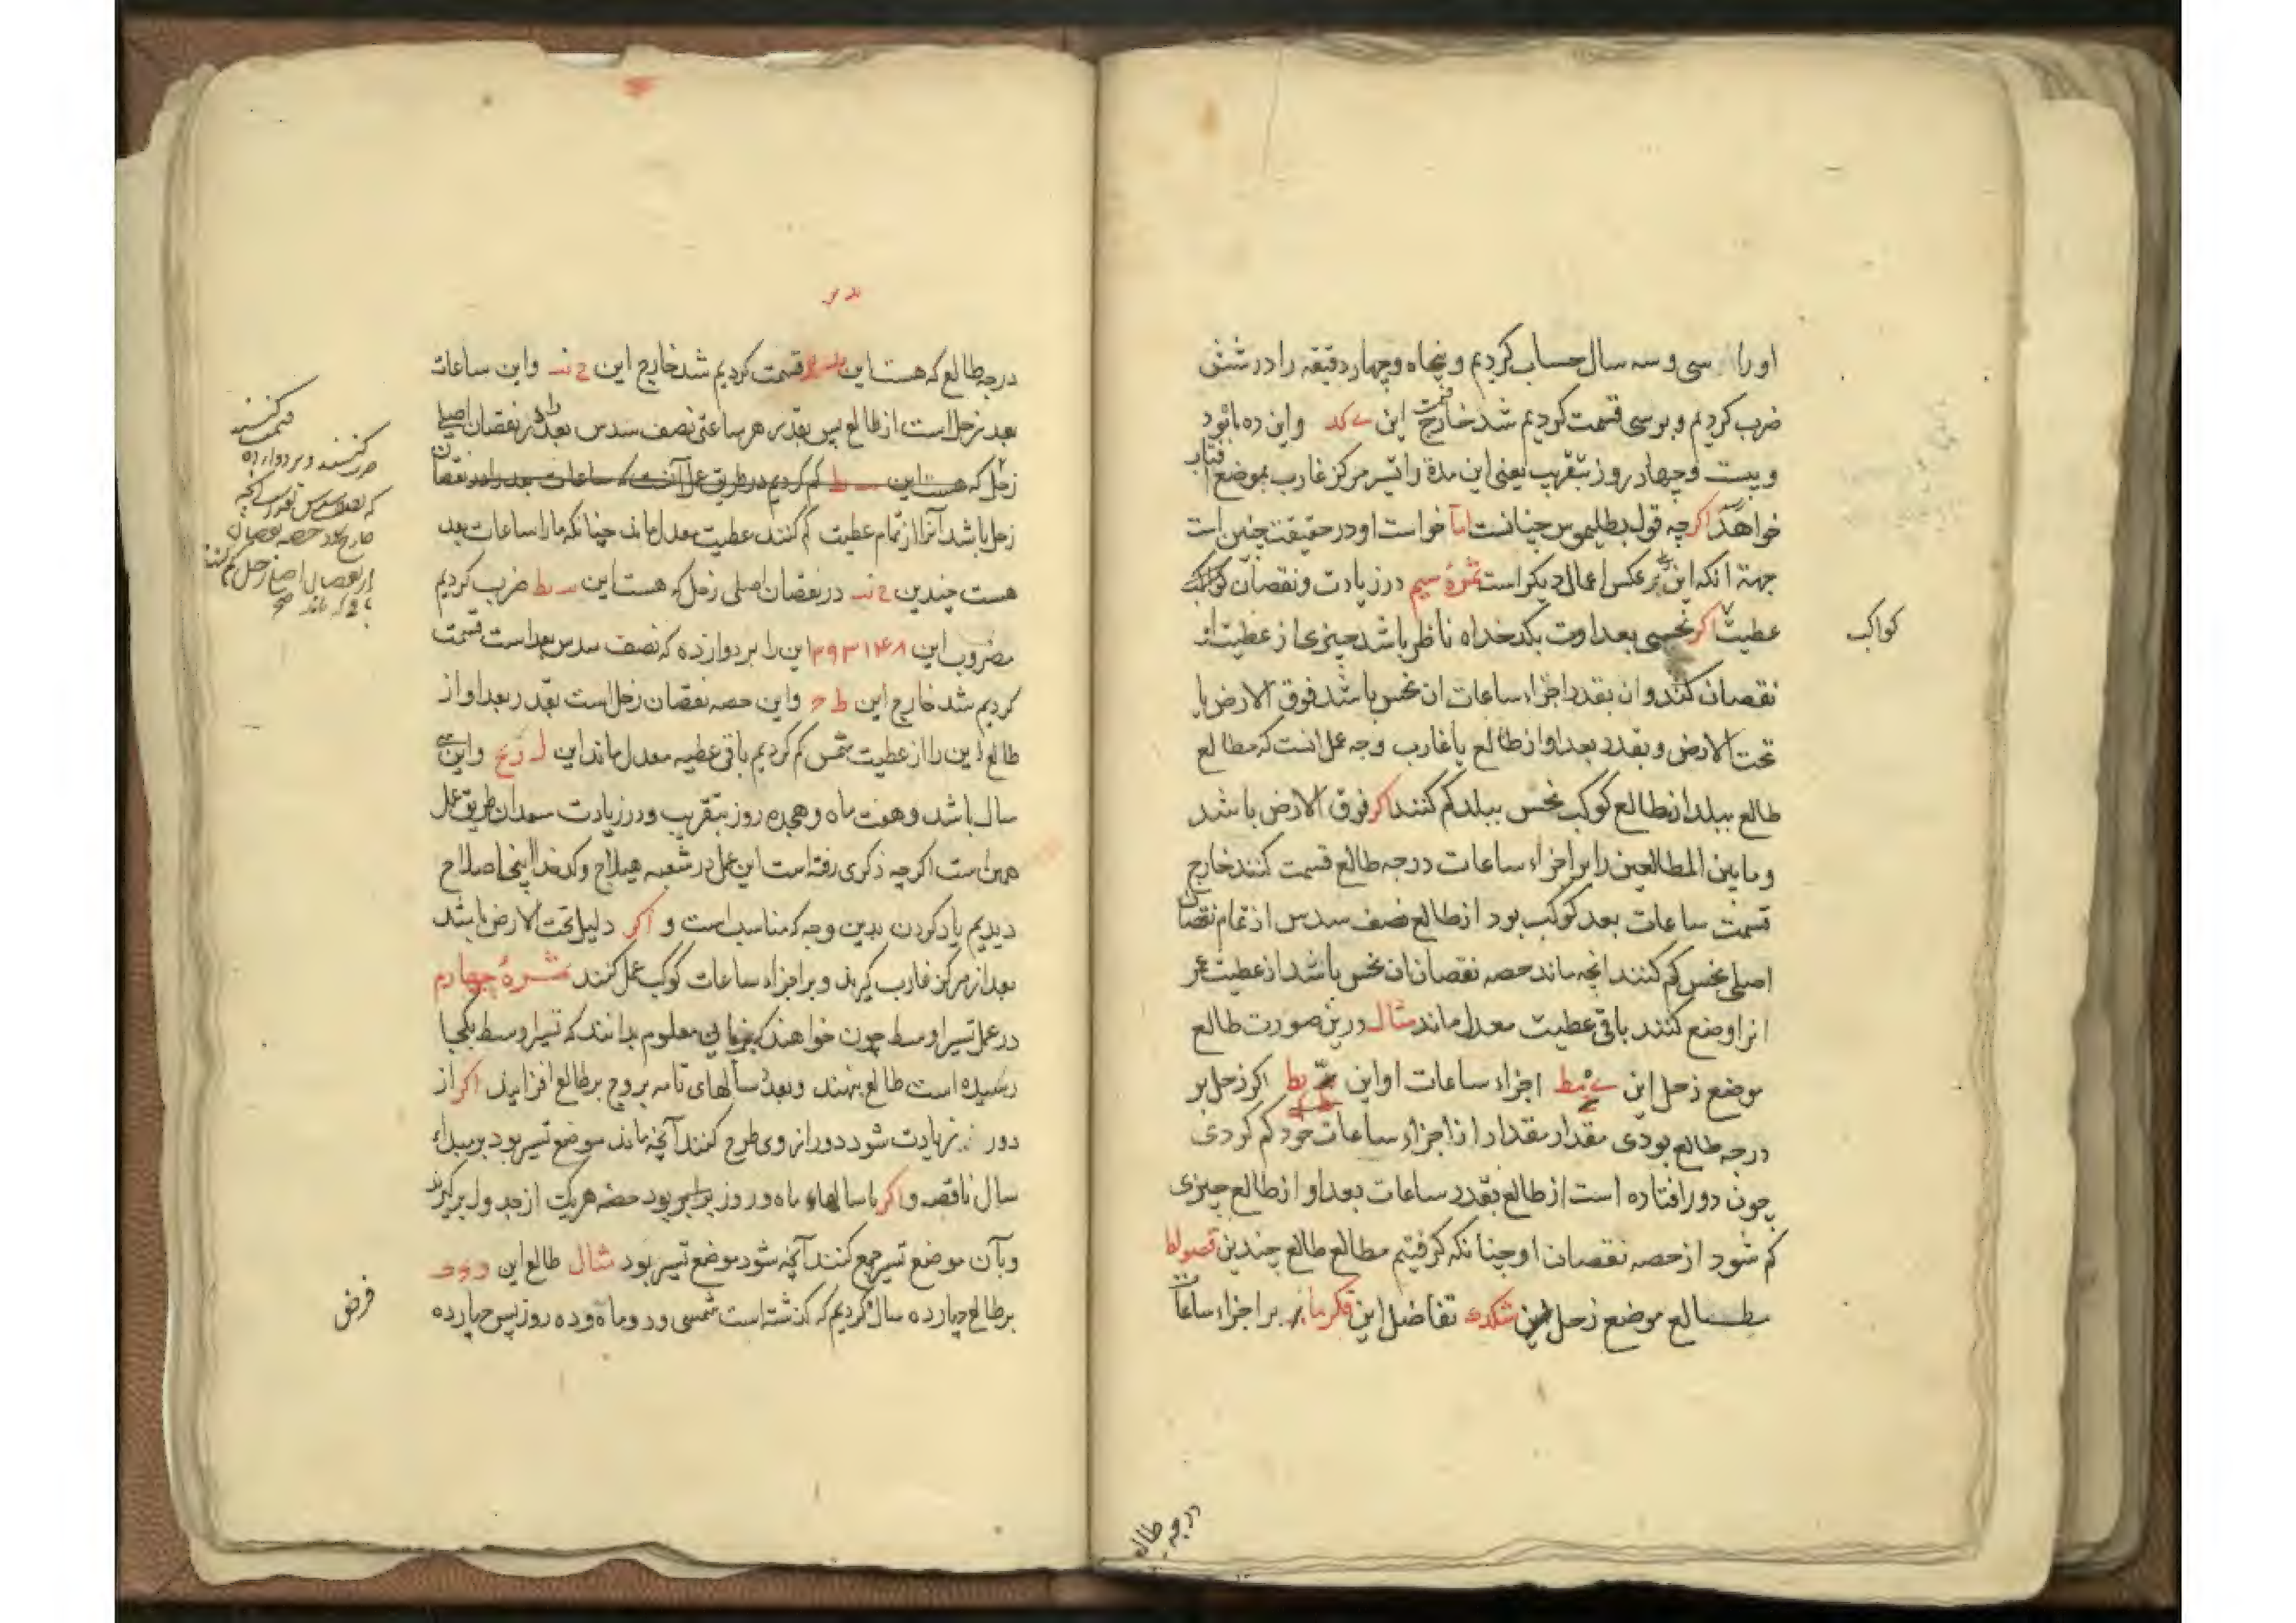 او را سی و سه سال حساب کردیم و پنجاه و چهار دقیقه را در شش
ضرب کردیم و بر سی قسمت کردیم شد خارج قسمت این ے کد و این ده ماه بود
و بیست و چهار روز بتقریب یعنی این مدة را تسیر مرکز غارب بموضع آفتاب
خواهد اکر چه قول بطلیموس چنانست اما خواست او در حقیقت چنین است
جهة آنکه این بر عکس اعمال دیکر است ثمرهٔ سیم در زیادت و نقصان کواکب
کواکب
عطیت اکر نحسی بعداوت بکدخداه ناظر باشد چیزی از عطیت او
نقصان کند و ان بقدر اجزاء ساعات ان نحس باشد فوق الارض یا
تحت الارض و بقدر بعد او از طالع یا غارب وجه عمل انست که مطالع
طالع ببلد از مطالع کوکب نحس ببلد کم کنند اکر فوق الارض باشد
و مابین المطالعین را بر اجزاء ساعات درجه طالع قسمت کنند خارج
قسمت ساعات بعد کوکب بود از طالع نصف سدس از تمام نقصان
اصلی نحس کم کنند انچه ماند حصه نقصان ان نحس باشد از عطیت عمر
انرا وضع کنند باقی عطیت معدل ماند مثال درین صورت طالع
موضع زحل این ے مط اجزاء ساعات او این یط اکر زحل بر
درجه طالع بودی مقدار مقدار از اجزاء ساعات خود کم کردی
چون دور افتاده است از طالع بقدر ساعات بعد او از طالع چیزی
کم شود از حصه نقصان او چنانکه کرفتیم مطالع طالع چندین قصولط
مطالع موضع زحل این شکدہ تفاضل این فکر ما بر اجزاء ساعات
درجه طالع
درجه طالع که هست این قسمت کردیم شد خارج این ح ند و این ساعات
بعد زحل است از طالع پس بقدر هر ساعتی نصف سدس بعد را در نقصان اصلی
زحل که هست این یط کم کردیم در طریق عمل آنست که ساعات بعد را در نقصان
زحل باشد آنرا از تمام عطیت کم کنند عطیت معدل ماند چنانکه ما را ساعات بعد
هست چندین ح ند در نقصان اصلی زحل که هست این یط ضرب کردیم
مضروب این ۱۳۹۳۱۴۸ این را بر دوازده که نصف سدس بعد است قسمت
کردیم شد خارج این ط ح و این حصه نقصان زحل است بقدر بعد او از
طالع این را از عطیت شمس کم کردیم باقی عطیه معدل ماند این ل ز یح و این سی
سال باشد و هفت ماه و هجده روز بتقریب و در زیادت سعدان طریق عمل
همین است اکر چه ذکری رفته است این عمل در شعبه هیلاج و کدخدا اینجا صلاح
دیدیم یاد کردن بدین وجه که مناسب است و اکر دلیل تحت الارض باشد
بعد از مرکز غارب کیرند و بر اجزاء ساعات کوکب عمل کنند ثمرهٔ چهارم
در عمل تسیر اوسط چون خواهند که بزمانی معلوم بدانند که تسیر اوسط بکجا
رسیده است طالع بنهند و بعدد سالهای تامه بروج بر طالع افزایند اکر از
دور زیادت شود دور از وی طرح کنند آنچه ماند موضع تسیر بود بر مبداء
سال ناقصه و اکر با سالهاء ماه و روز برابر بود حصه هر یک از جدول برکیرند
و بآن موضع تسیر جمع کنند آنچه شود موضع تسیر بود مثال طالع این
بر طالع چهارده سال کردیم که کذشته است شمسی و دو ماه و ده روز پس چهارده
فرض
قسمت کنند
ضرب کنند و بر دوازده
که نصف سدس
خارج بود حصه نقصان
از نقصان اصل زحل کم کنند